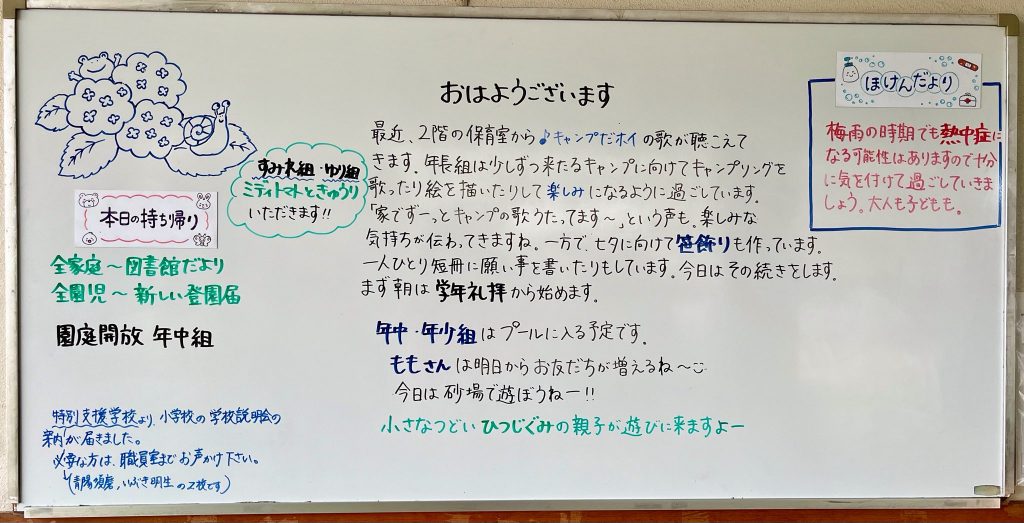 おはようございます
最近、2階の保育室から♪キャンプだホイの歌が聴こえて
きます。年長組は少しずつ来たるキャンプに向けてキャンプソングを
歌ったり絵を描いたりして楽しみになるように過ごしています。
「家でずーっとキャンプの歌うたってます〜」という声も。楽しみな
気持ちが伝わってきますね。一方で、七夕に向けて笹飾りも作っています。
一人ひとり短冊に願い事を書いたりもしています。今日はその続きをします。
まず朝は学年礼拝から始めます。
年中・年少組はプールに入る予定です。
ももさんは明日からお友だちが増えるね〜
今日は砂場で遊ぼうねー!!
小さなつどい ひつじぐみの親子が遊びに来ますよー
すみれ組・ゆり組
ミディトマトときゅうり
いただきます!!
本日の持ち帰り
全家庭〜図書館だより
全園児〜新しい登園届
園庭開放 年中組
特別支援学校より、小学校の学校説明会の
案内が届きました。
必要な方は、職員室までお声かけ下さい。
(青陽須磨、いぶき明生の2枚です)
ほけんだより
梅雨の時期でも熱中症に
なる可能性はありますので十分
に気を付けて過ごしていきま
しょう。大人も子どもも。